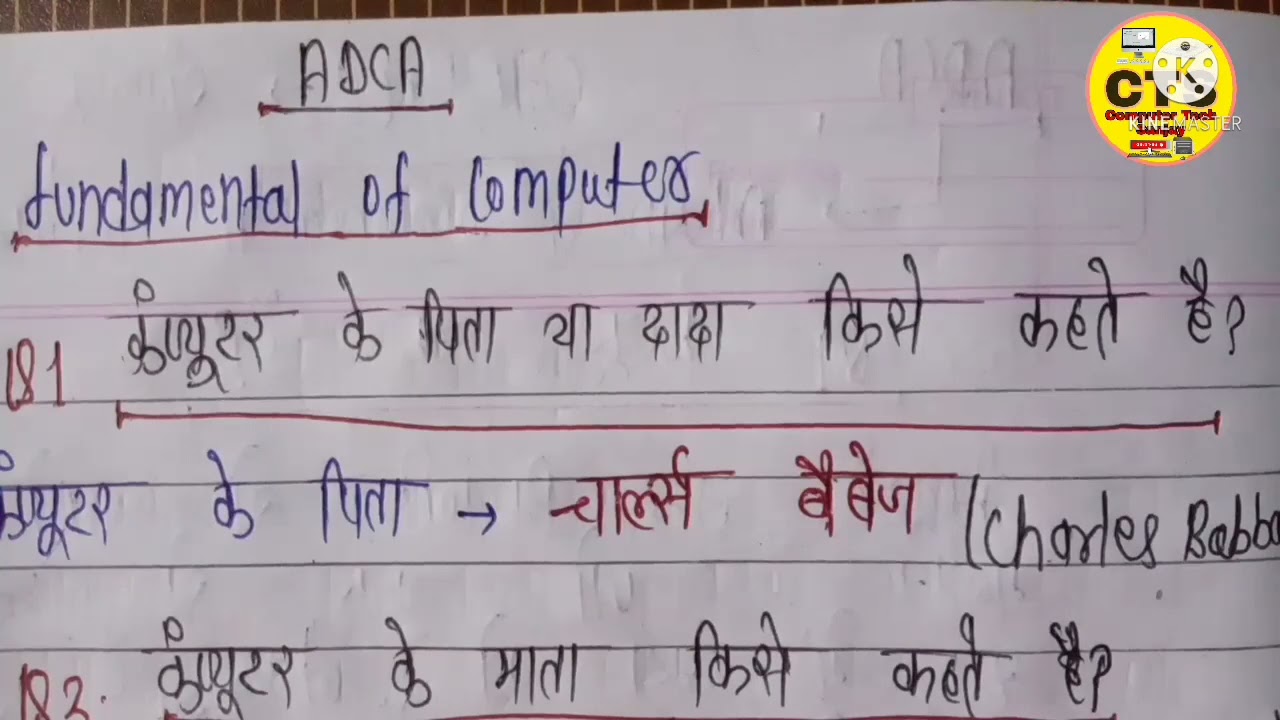 ADCA
fundamental of Computer
Q1 कंप्यूटर के पिता या दादा किसे कहते है?
के पिता → चार्ल्स बैबेज (Charles Babba
Q2. कंप्यूटर के माता किसे कहते है?
CTS
Computer Tech
KINEMASTER